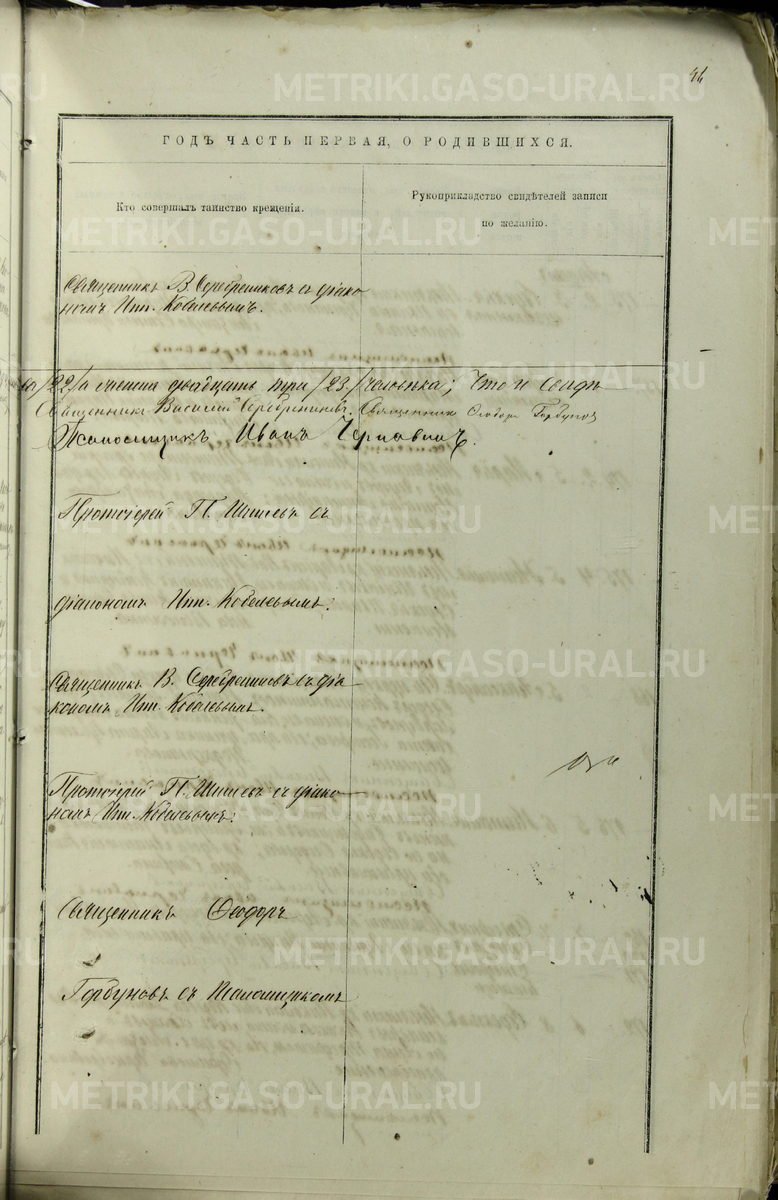 METRIKI.GASO-URAL.RU
ГОДЪ ЧАСТЬ ПЕРВАЯ, О РОДИВШИХСЯ.
Кто совершалъ таинство крещенія.
Рукоприкладство свидѣтелей записи
по желанію.
Священникъ В. Серебрениковъ съ діако-
номъ Ипп. Кобелевымъ.
/22/ а всего двадцать три /23/ человѣка; Что и свидѣ
Священникъ Василій Серебрениковъ. Священникъ Ѳеодоръ Горбуновъ
Псаломщикъ Иванъ Чернавинъ.
Протоіерей П. Шишевъ съ
діакономъ Ипп. Кобелевымъ.
Священникъ В. Серебрениковъ съ діа-
кономъ Ипп. Кобелевымъ.
Протоіерей П. Шишевъ съ діако-
номъ Ипп. Кобелевымъ.
Священникъ Ѳеодоръ
Горбуновъ съ Псаломщикомъ